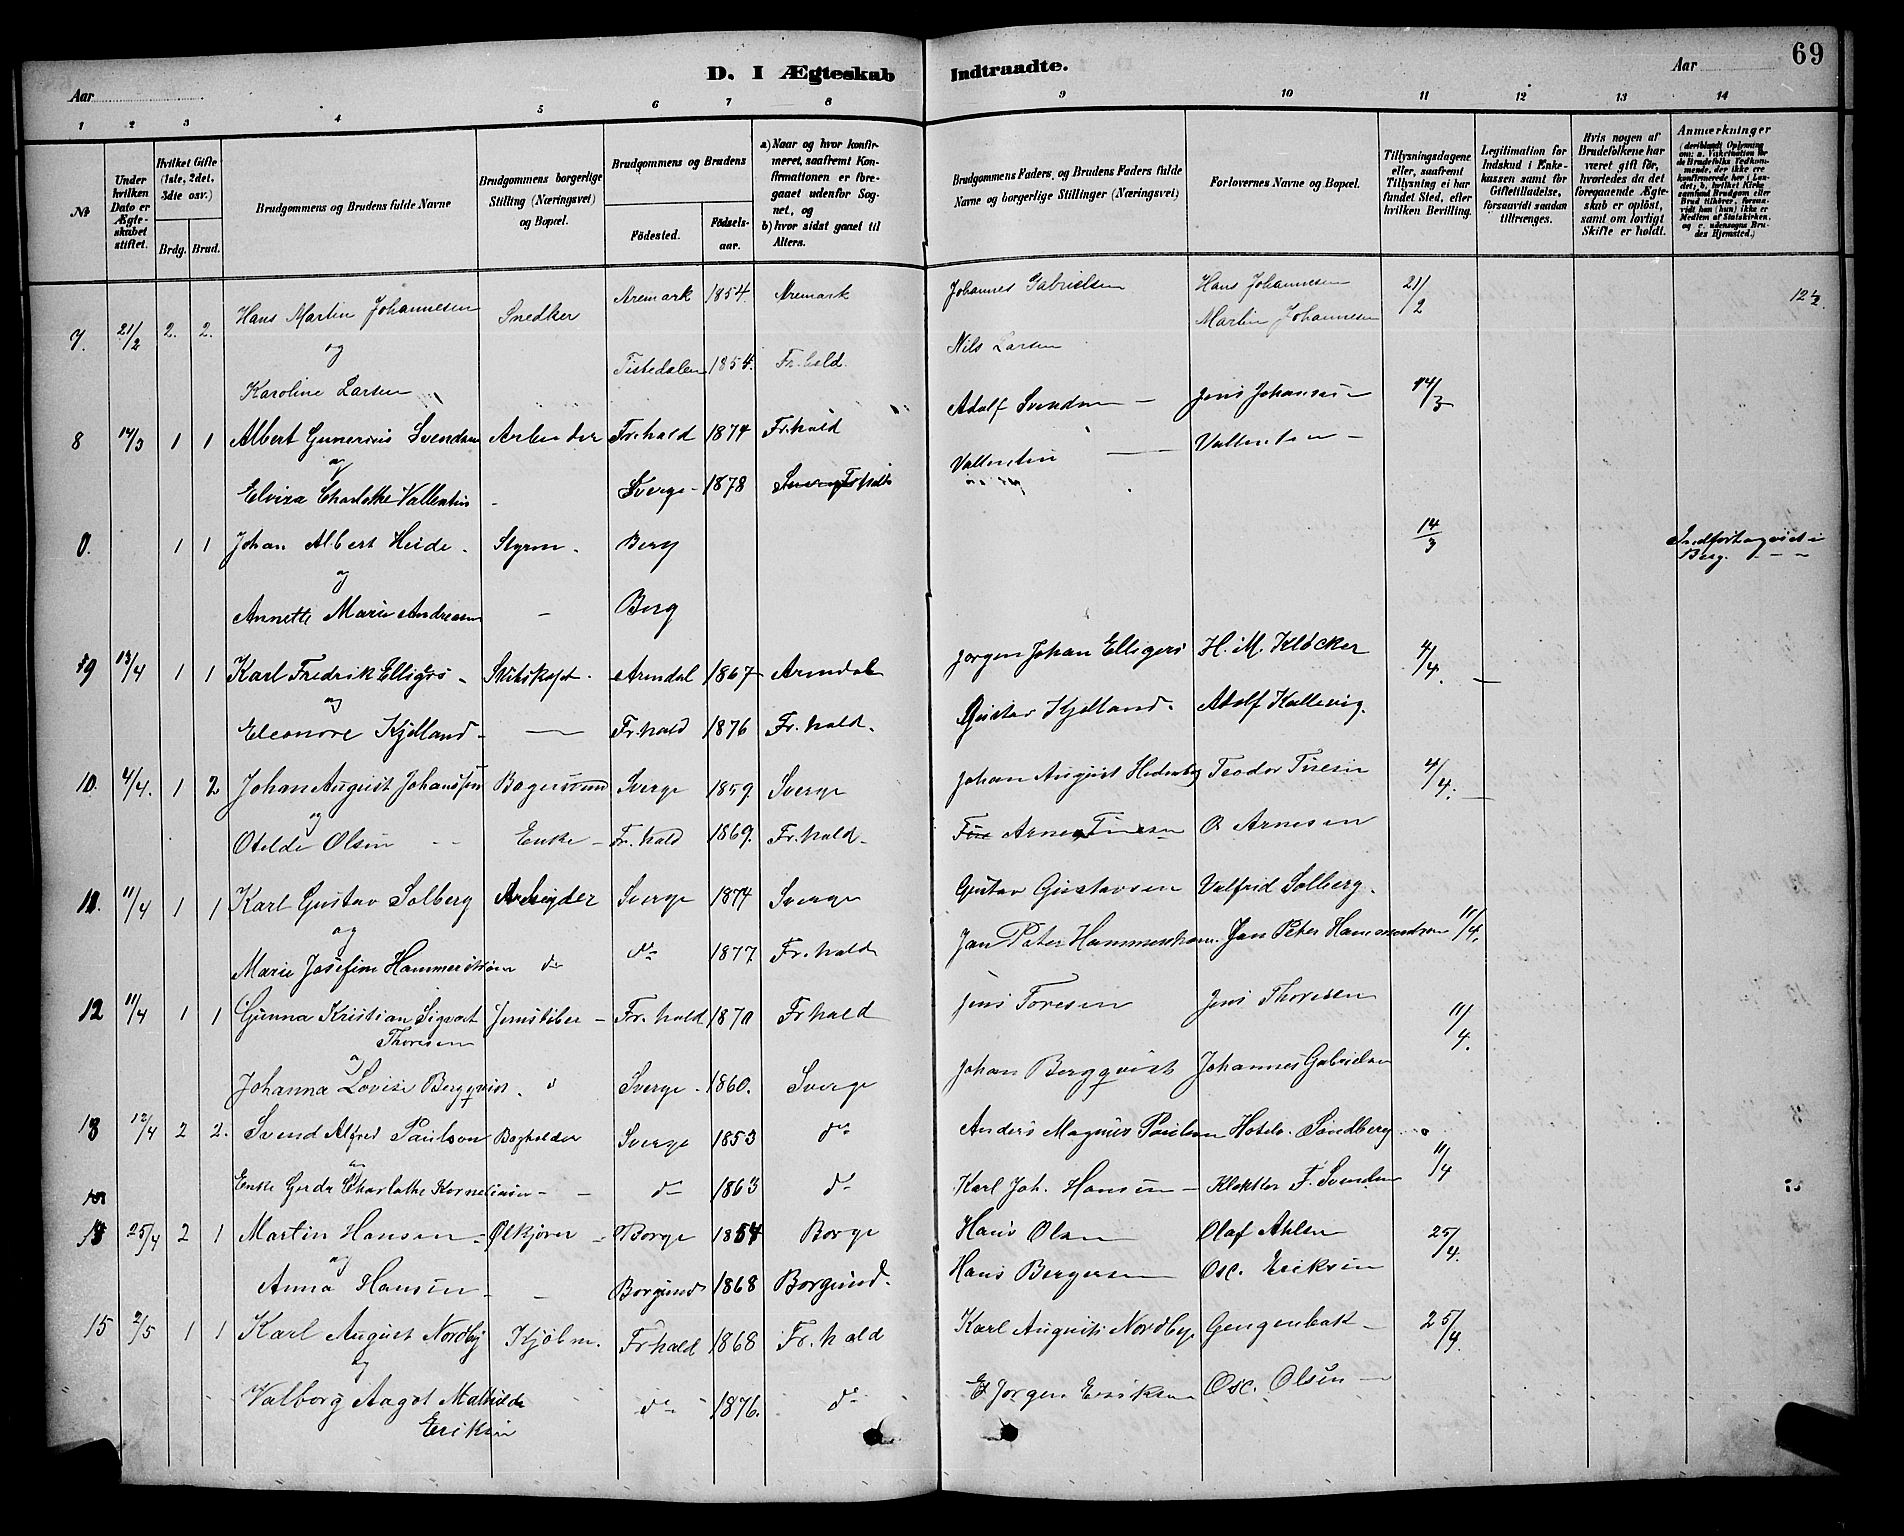 69
D. I Ægteskab Indtraadte.
Aar Aar
1 2 3 4 5 6 7 8 9 10 11 12 13 14
№
Under hvilken Dato er Ægteskabet stiftet.
Hvilket Gifte (1ste, 2det, 3die osv.)
Brdg. Brud.
Brudgommens og Brudens fulde Navne
Brudgommens borgerlige Stilling (Næringsvei) og Bopæl.
Brudgommens og Brudens
Fødested. Fødselsaar.
a) Naar og hvor konfirmeret, saafremt Konfirmationen er foregaaet udenfor Sognet, og
b) hvor sidst gaaet til Alters.
Brudgommens Faders, og Brudens Faders fulde Navne og borgerlige Stillinger (Næringsvei)
Forlovernes Navne og Bopæl.
Tillysningsdagene eller, saafremt Tillysning ei har fundet Sted, efter hvilken Bevilling.
Legitimation for Indskud i Enkekassen samt for Giftetilladelse, forsaavidt saadan tiltrænges.
Hvis nogen af Brudefolkene har været gift før, hvorledes da det foregaaende Ægteskab er opløst, samt om lovligt Skifte er holdt.
Anmærkninger
7. 21/2 2. 2. Hans Martin Johannesen Snedker Aremark 1854. Aremark Johannes Gabrielsen Hans Johannesen 21/2
og Martin Johannesen
Karoline Larsen Tistedalen 1854. Fr.hald. Nils Larsen
8 14/3 1 1 Albert Gunerius Svendsen Arbeider Fr.hald 1874 Fr.hald Adolf Svendsen — Jens Johansen 14/3
og
Elvira Charlotte Vallentin - Sverge - 1878 Fr.hald Vallentin — Vallentin -
0. 1 1 Johan Albert Heide. Styrm. Berg 14/3 Indført og viet i Berg.
og
Annette Marie Andresen — Berg
9 13/4 1 1 Karl Fredrik Elligers - Skibskapt. Arendal 1867 Arendal Jørgen Johan Elligers H. M. Kløcker 4/4.
og
Eleonore Kjelland - — Fr.hald 1876 Fr.hald. Gustav Kjelland. Adolf Kallevig.
10. 4/4. 1 2 Johan August Johanssen Bogesund Sverge 1859. Sverge Johan August Hedenberg Teodor Turesen 4/4.
og
Otelde Olsen Enke - Fr.hald 1869. Fr.hald. Arne Turesen O Arnesen
11. 11/4 1 1 Karl Gustav Solberg Arbeider Sverge 1874 Sverge Gustav Gustavsen Valfrid Solberg.
og
Marie Josefine Hammerstrøm do do 1877. Fr.hald Jan Peter Hammerstrøm. Jan Peter 11/4.
12 11/4 1 1 Gunna Kristian Sigvart Thoresen Jernstøber - Fr.hald 1870 Fr.hald Jens Toresen Jens Thoresen 11/4.
og
Johanna Lovise Bergqvist. Sverge - 1860. Sverge Johan Bergqvist Johannes Gabrielsen
13 12/4 2 2. Svend Alfred Paulson Bogholder Sverge 1853 do Anders Magnus Paulsen Hotelv. Sandberg 11/4
og
Enke Gerda Charlotte Korneliusen - - do 1863 do Karl Joh. Hansen - F. Svendsen
14 25/4 2 1 Martin Hansen - Ølkjører - Borge 1854 Borge Hans Olsen Olaf Ahlsen 25/4.
og
Anna Hansen - - Borgund 1868 Borgund. Hans Bergersen Osc. Eriksen
15 2/5 1 1 Karl August Nordby Kjøbm. Fr.hald 1868 Fr.hald Karl August Nordbye Gengenbak - 25/4.
og
Valborg Aagot Mathilde Eriksen do 1876. do Jørgen Eriksen Osc. Olsen -